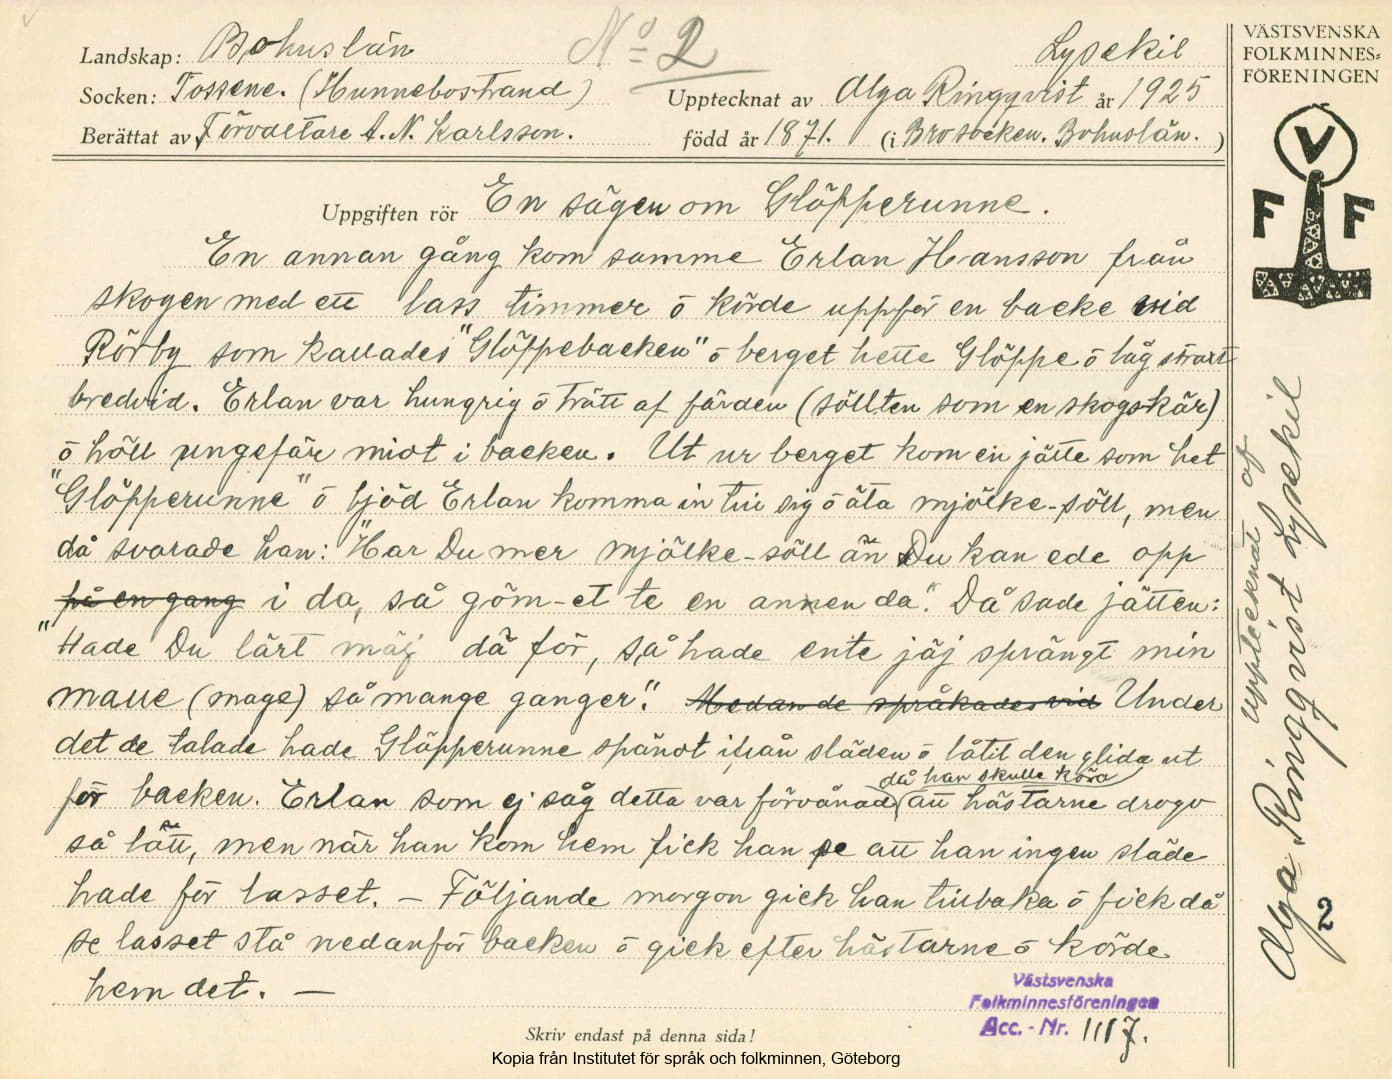 Landskap: Bohuslän
No 2
Lysekil
Socken: Tossene. (Hunnebostrand)
Upptecknat av Olga Ringqvist år 1925
Berättat av Förvaltare A. N. Karlsson.
född år 1871. (i Brosocken. Bohuslän.)
Uppgiften rör En sägen om Glöpperunne.
En annan gång kom samme Erlan Hansson från
skogen med ett lass timmer ō körde uppför en backe vid
Rörby som kallades "Glöppebacken" ō berget hette Glöppe ō låg strax
bredvid. Erlan var hungrig ō trätt af färden (söllten som en skogskär)
ō höll ungefär midt i backen. Ut ur berget kom en jätte som het
"Glöpperunne" ō bjöd Erlan komma in till sig ō äta mjölke-söll, men
då svarade han: "Har Du mer mjölke-söll än Du kan ede opp
på en gang i da, så göm-et te en annen da". Då sade jätten:
"Hade Du lärt mäj då för, så hade ente jäj sprängt min
malle (mage) så mange ganger". Medan de språkades vid Under
det de talade hade Glöpperunne spändt ifrån släden ō låtit den glida ut
då han skulle köra
för backen. Erlan som ej såg detta var förvånad att hästarne drogo
så lätt, men när han kom hem fick han se att han ingen släde
hade för lasset. — Följande morgon gick han tillbaka ō fick då
se lasset stå nedanför backen ō gick efter hästarne ō körde
hem det. —
Västsvenska
Folkminnesföreningen
Acc. - Nr. 1117.
Skriv endast på denna sida!
Kopia från Institutet för språk och folkminnen, Göteborg
VÄSTSVENSKA
FOLKMINNES=
FÖRENINGEN
V
F F
upptecknat af
Olga Ringqvist Lysekil
2